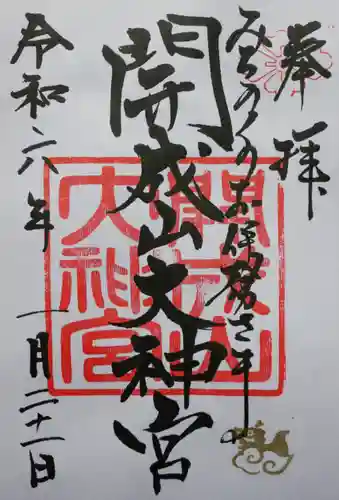 奉拝
みちのくのお伊勢さま
開成山大神宮
令和六年
一月二十一日
開成山大神宮